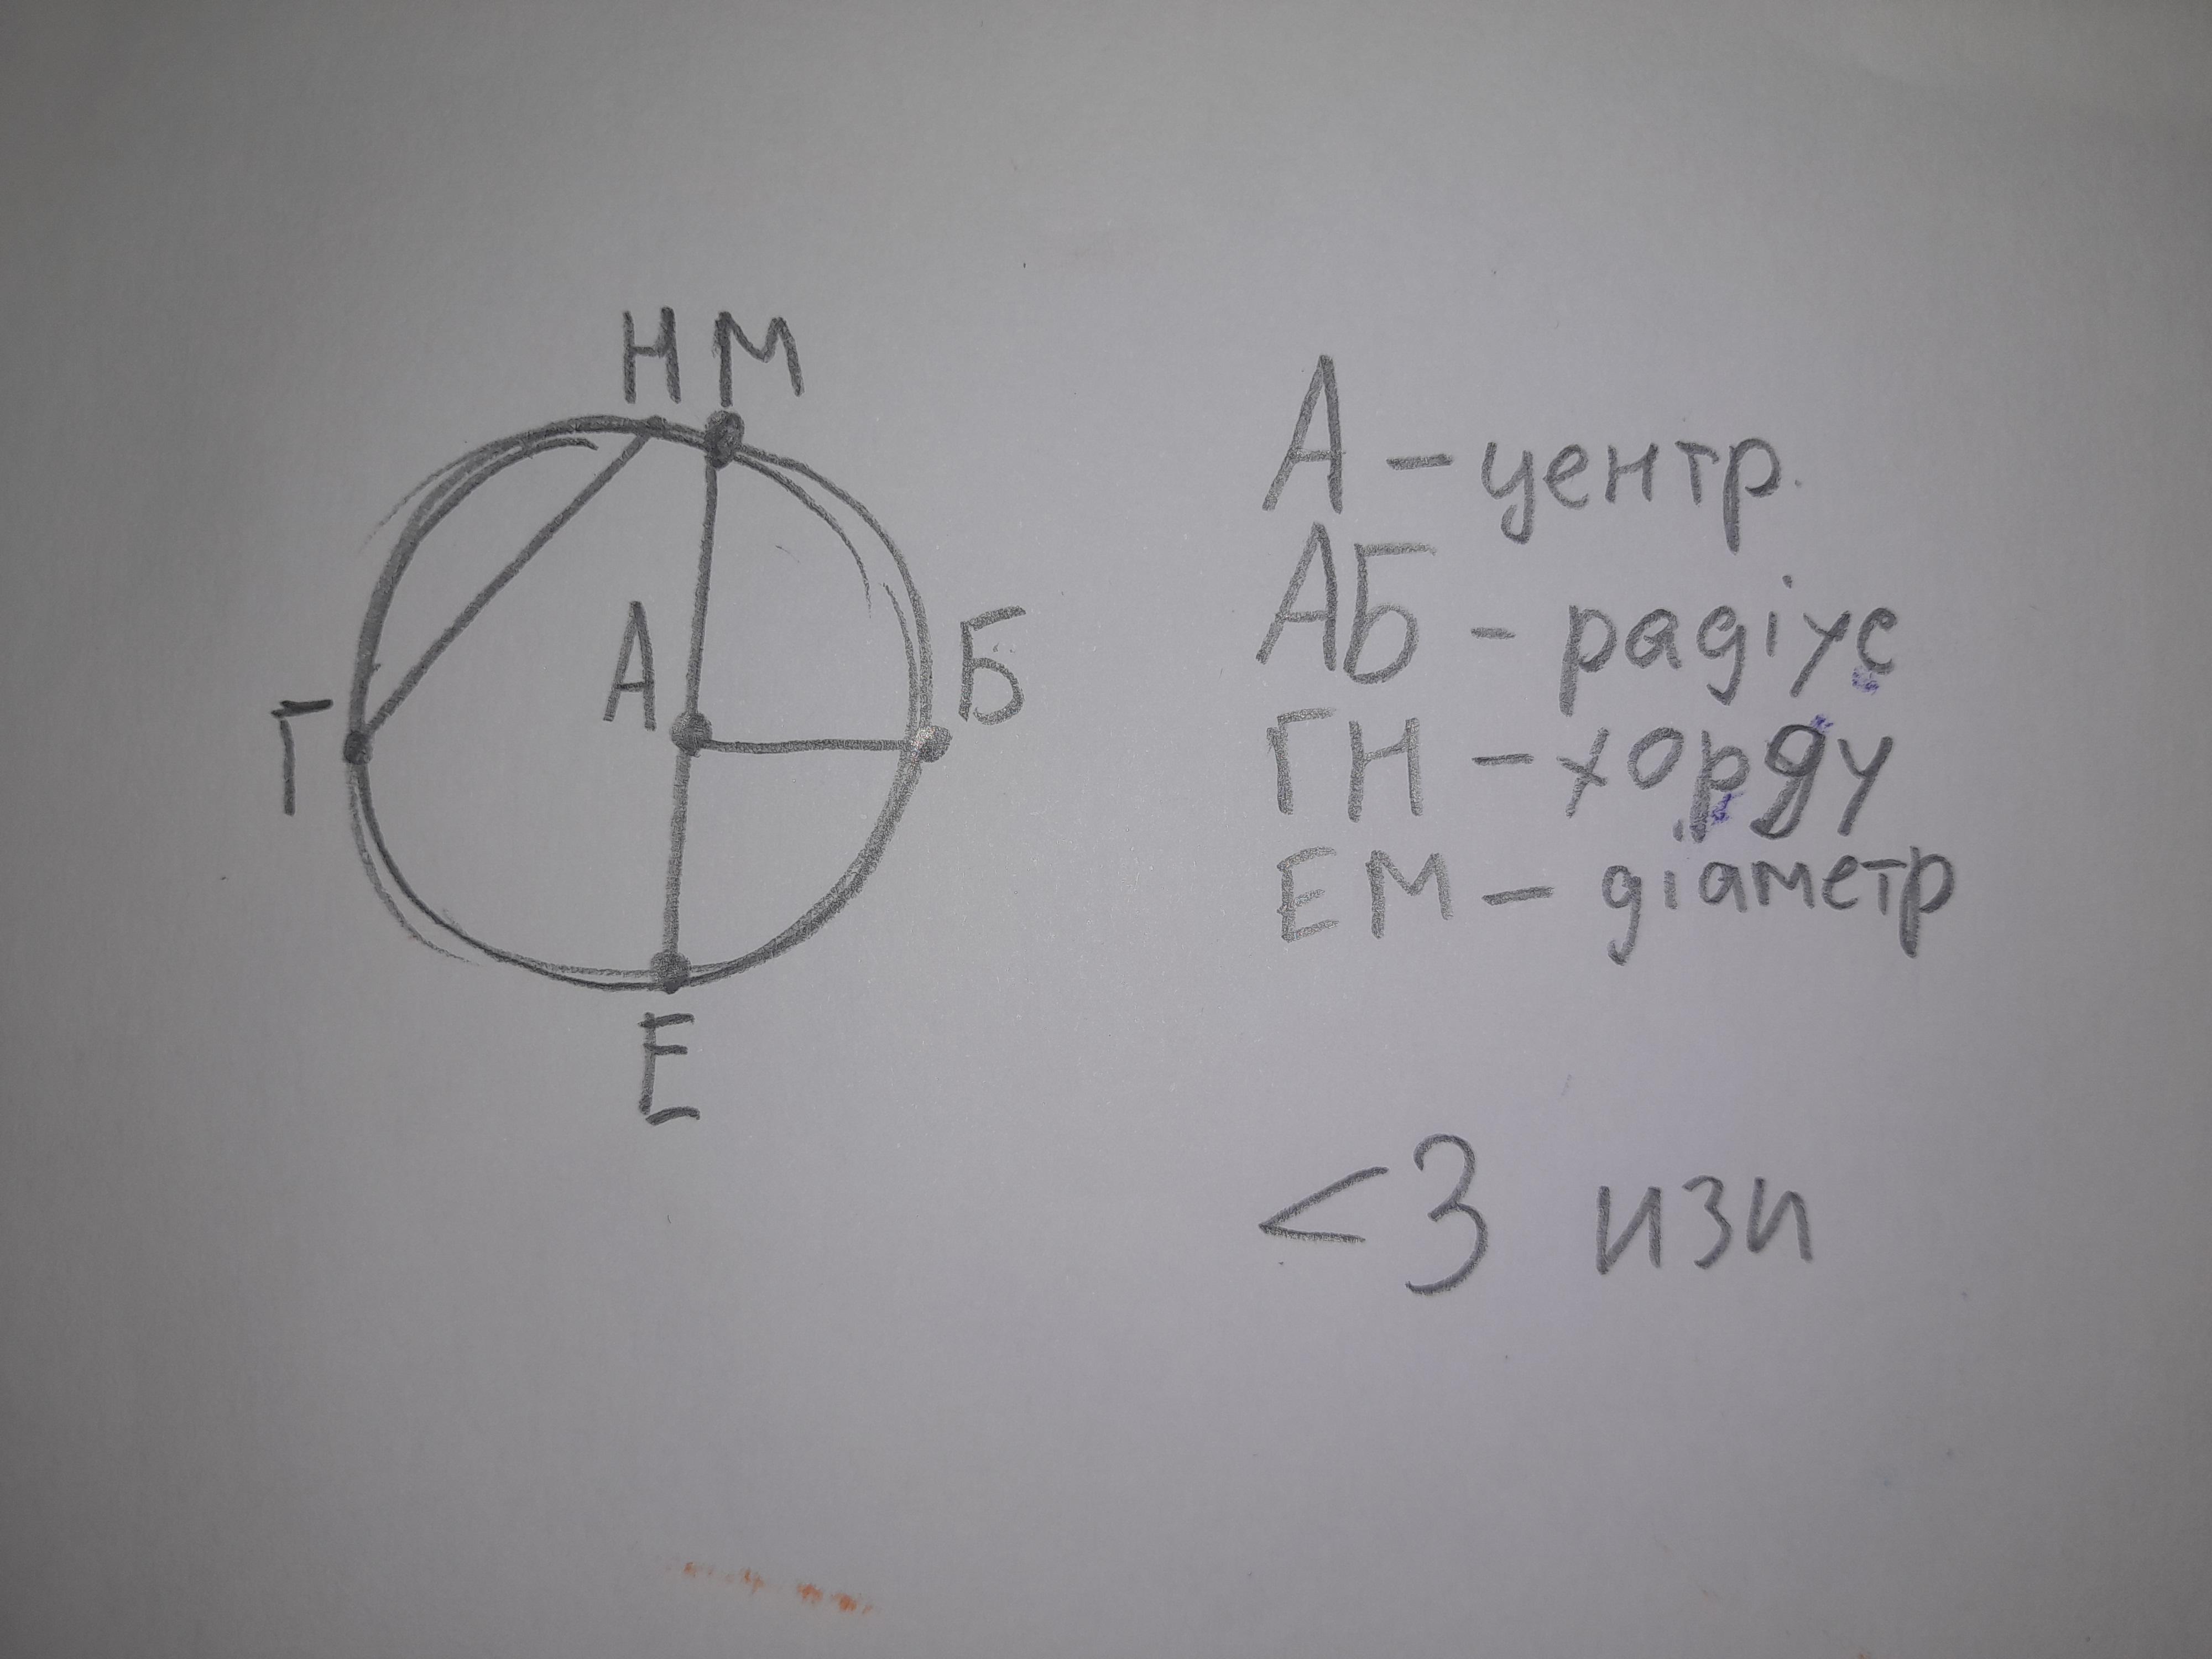 Н М
А
Б
Г
Е
А - центр.
АБ - радіус
ГН - хорду
ЕМ - діаметр
<3 изи